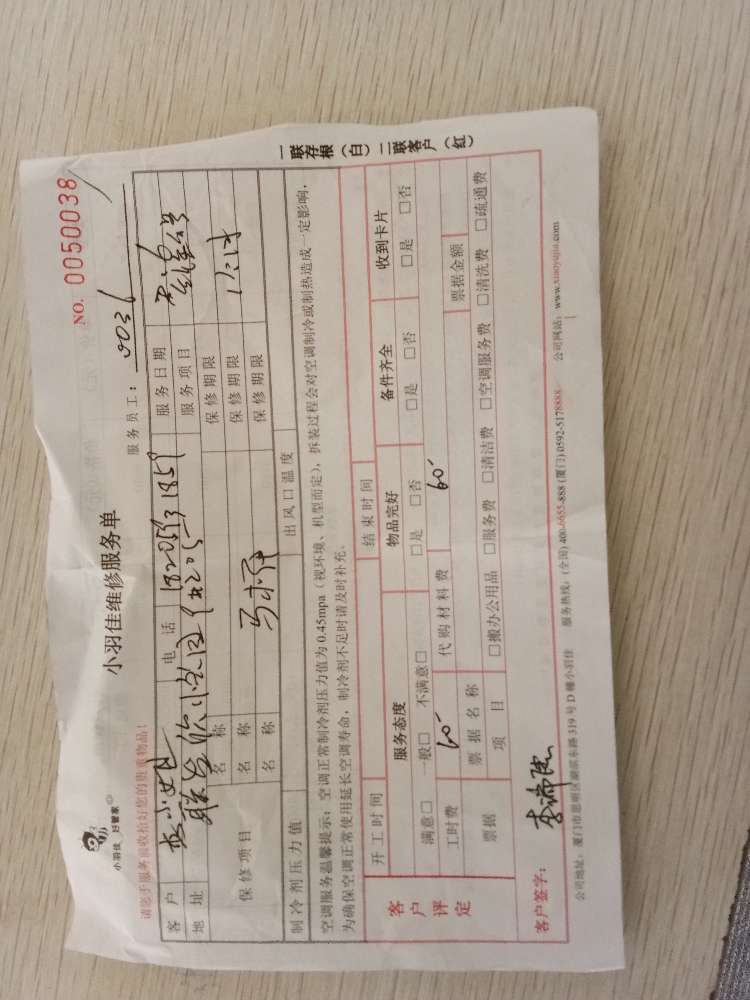 小羽佳 好管家
小羽佳维修服务单
NO. 0050038
请您于服务前收拾好您的贵重物品！
服务员工：0036
客户 李小姐 电话 18205931859 服务日期
地址 服务项目
保修项目 名称 保修期限
名称 保修期限
名称 保修期限
制冷剂压力值 出风口温度
空调服务温馨提示：空调正常制冷剂压力值为0.45mpa（视环境、机型而定），拆装过程会对空调制冷或制热造成一定影响，
为确保空调正常使用延长空调寿命，制冷剂不足时请及时补充。
开工时间 结束时间
客户评定 服务态度 物品完好 备件齐全 收到卡片
满意□ 一般□ 不满意□ □是 □否 □是 □否 □是 □否
工时费 60 代购材料费 60
票据 票据名称 票据金额
项目 □搬办公用品 □服务费 □清洁费 □空调服务费 □清洗费 □疏通费
客户签字：
公司地址：厦门市思明区湖滨东路319号D幢小羽佳 服务热线：(全国)400-6685-888 (厦门)0592-5178888 公司网站：www.xiaoyujia.com
一联存根（白）二联客户（红）